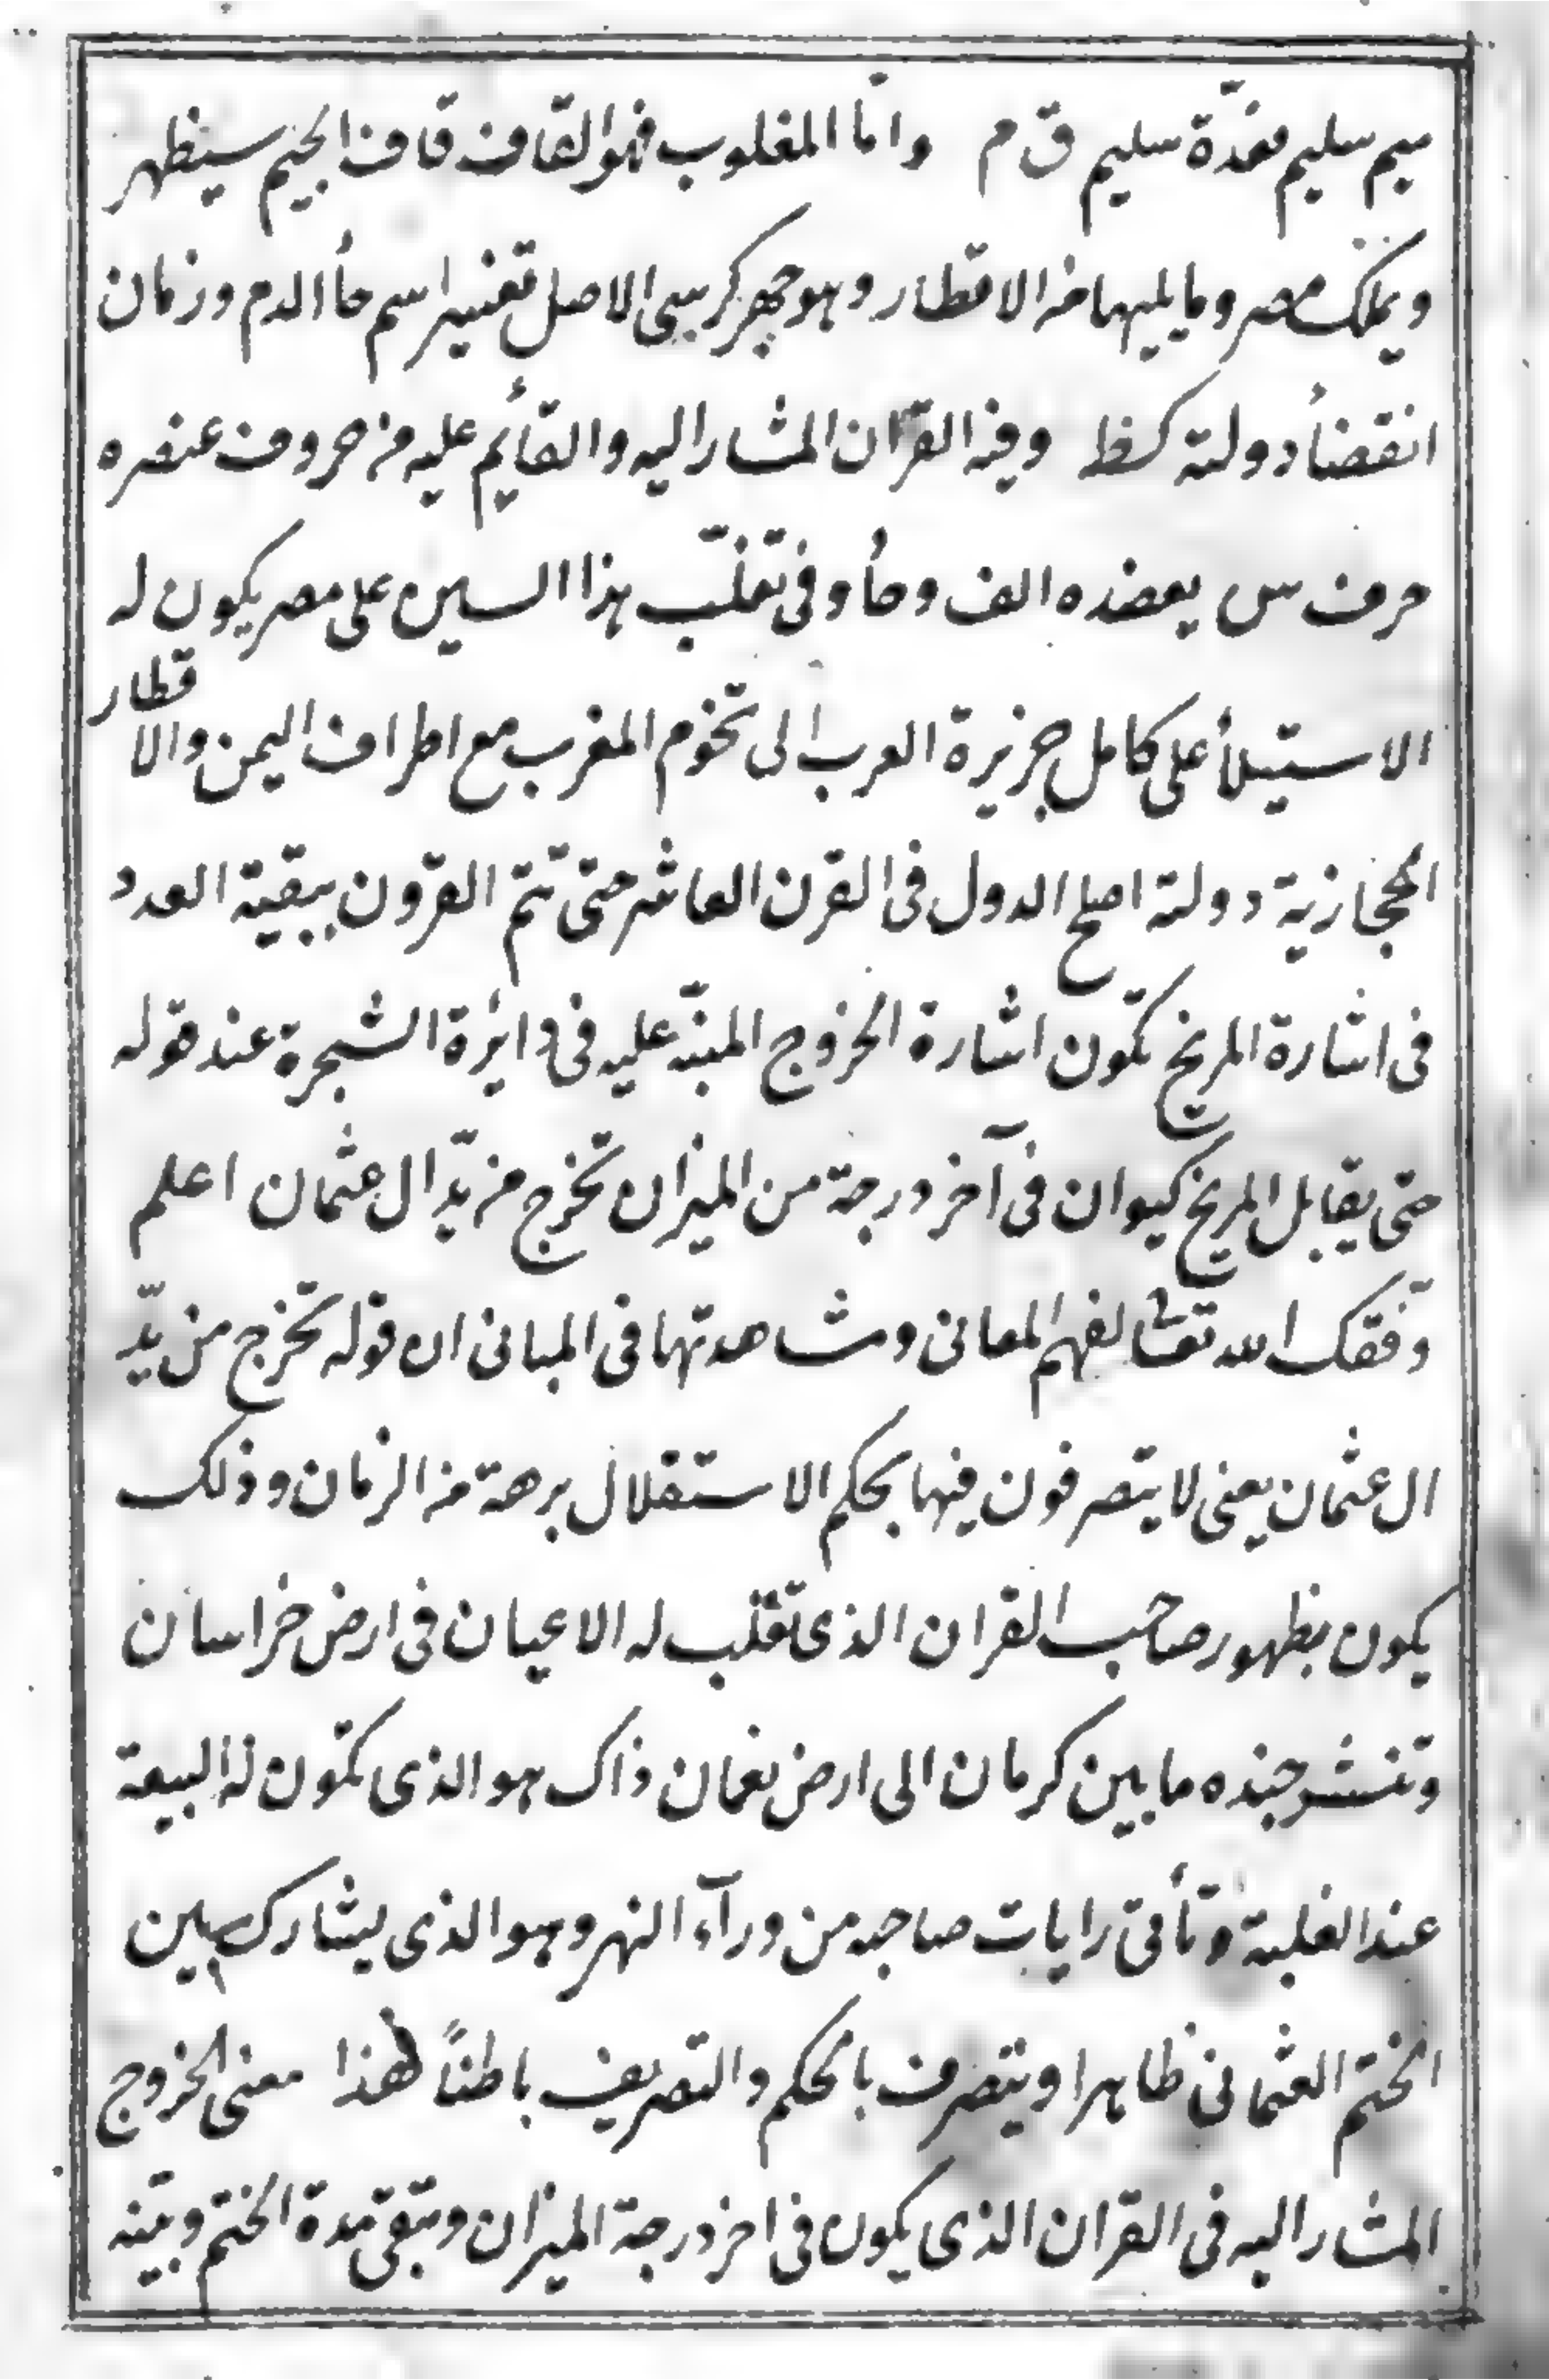 ميم سليم معدّة سليم ق م وامّا المغلوب فهو القاف قاف الجيم سيظهر
ويملك مصر وما يليها من الاقطار وهو جهركرسى الاصل تفسير اسم حأ الدم وزمان
انقضأ دولته كسظ وفيه القران المشار اليه والقأيم عليه من حروف عنصره
حرف س يعضده الف وحأ وفى تغلّب هذا السين على مصر يكون له
الاستيلأ على كامل جزيرة العرب الى تخوم المغرب مع اطراف اليمن والا قطار
الحجازية دولته اصلح الدول فى القرن العاشر حتى تتم القرون ببقية العدد
فى اشارة المريخ تكون اشارة الخروج المنبّه عليه فى دايرة الشجرة عند قوله
حتى يقابل المريخ كيوان فى آخر درجة من الميزان تخرج من يدّ ال عثمان اعلم
وفقك الله تعالى لفهم المعانى ومشاهدتها فى المبانى ان قوله تخرج من يدّ
ال عثمان يعنى لا يتصرفون فيها بحكم الاستقلال برهة من الزمان وذلك
يكون بظهور صاحب القران الذى تقلب له الاعيان فى ارض خراسان
وتنتشر جنده ما بين كرمان الى ارض نعمان ذاك هو الذى تكون له البيعة
عند الغلبة وتأتى رايات صاحبه من ورآء النهر وهو الذى يشارك سين
الختم العثمانى ظاهرا ويتصرف بالحكم والتصريف باطناً فهذا معنى الخروج
المشار اليه فى القران الذى يكون فى اخر درجة الميزان وتبقى مدة الختم وبيّنه